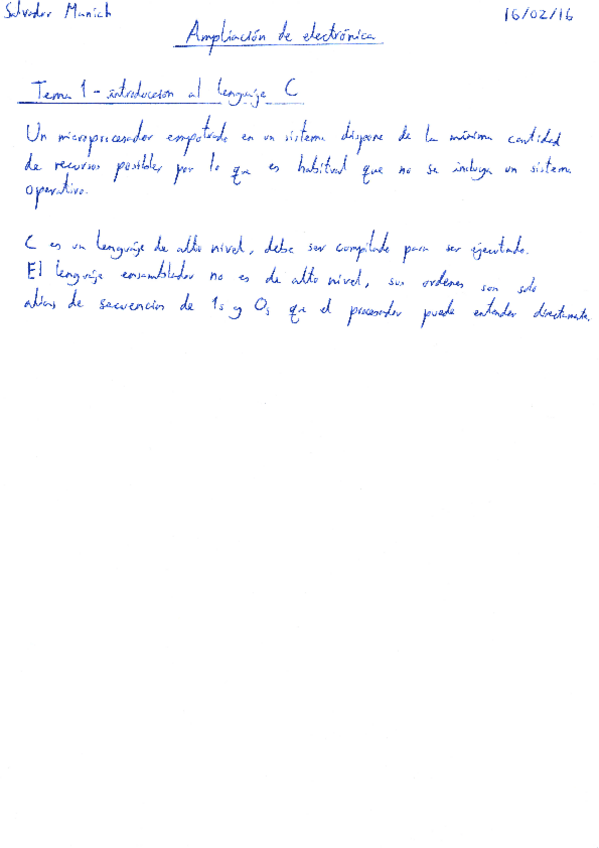 Salvador Manich
16/02/16
Ampliación de electrónica
Tema 1 - introduccion al lenguaje C
Un microprocesador empotrado en un sistema dispone de la mínima cantidad
de recursos posibles por lo que es habitual que no se incluya un sistema
operativo.
C es un lenguaje de alto nivel, debe ser compilado para ser ejecutado.
El lenguaje ensamblador no es de alto nivel, sus ordenes son solo
alias de secuencias de 1s y 0s que el procesador puede entender directamente.